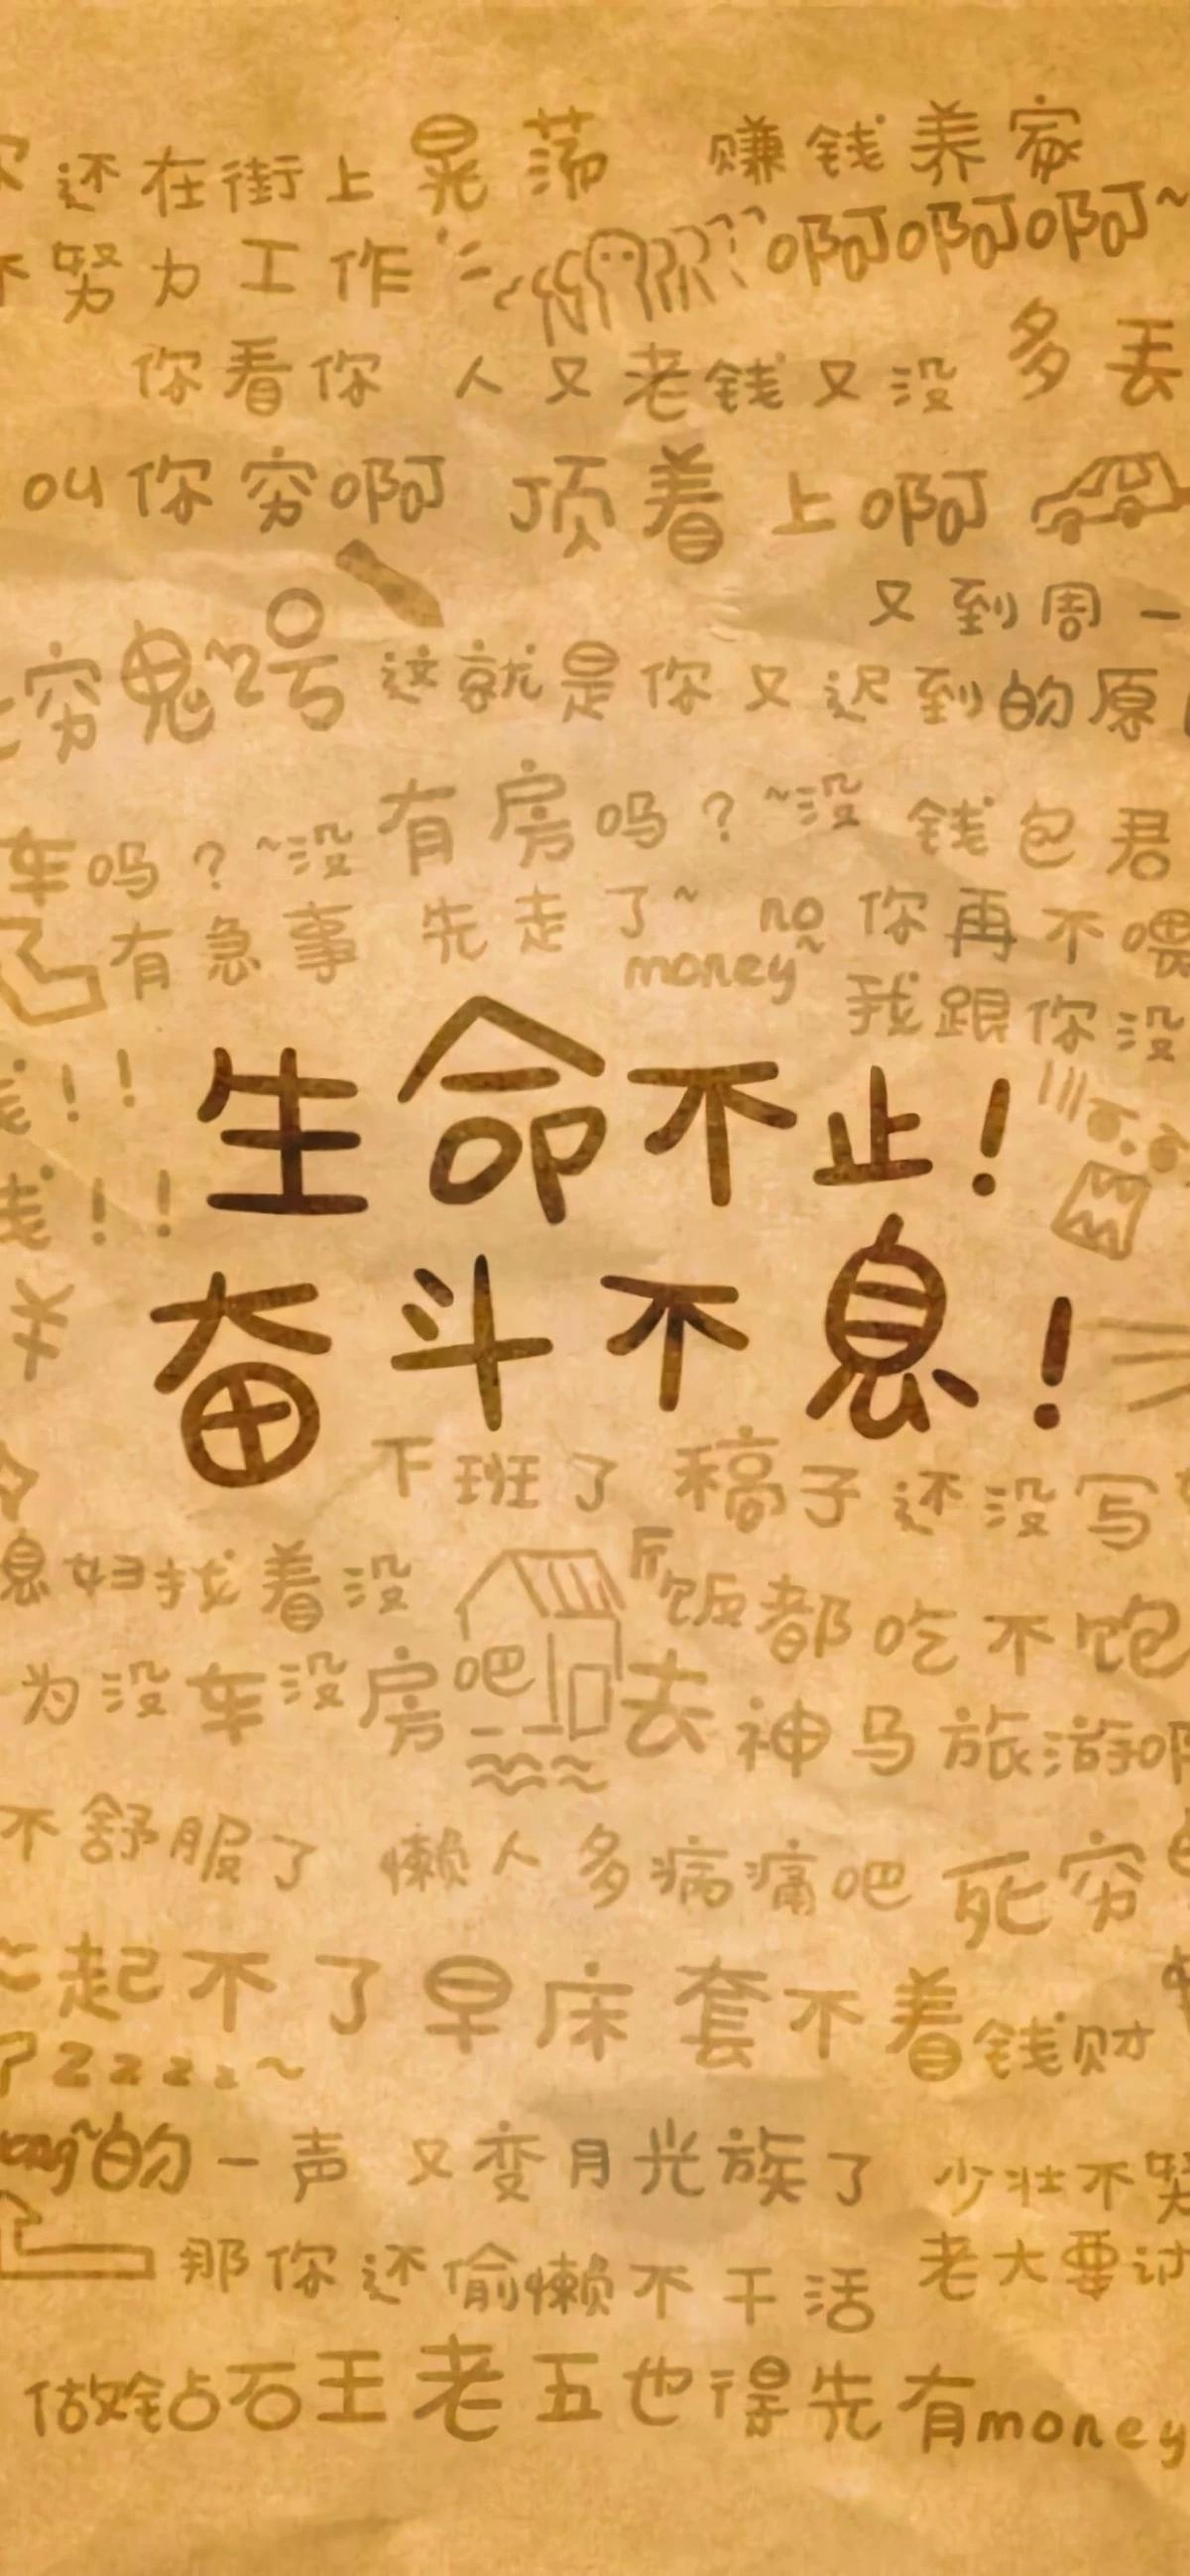 还在街上晃荡
赚钱养家
不努力工作
啊啊啊~
你看你 人又老钱又没
多丢
叫你穷啊 顶着上啊
又到周一
穷鬼2号
这就是你又迟到的原因
车吗？~没 有房吗？~没
钱包君
有急事 先走了~
no money~
你再不喂
我跟你没
生命不止！
钱！！
奋斗不息！
下班了 稿子还没写
息妇找着没
饭都吃不饱
为没车没房吧
去神马旅游啊
不舒服了 懒人多病痛吧
死穷
起不了早床 套不着钱财
zzzzz~
的一声 又变月光族了
少壮不努
老大要讨
那你还偷懒不干活
做钻石王老五也得先有money